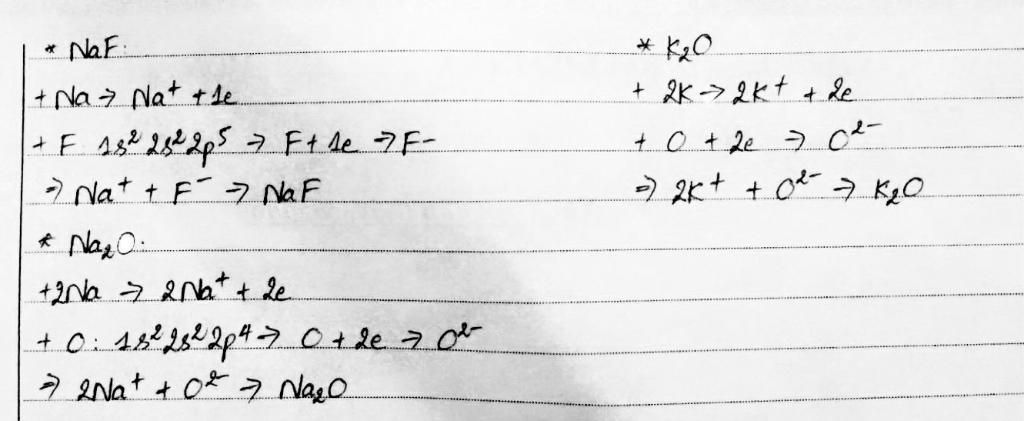 * NaF:
+ Na → Na⁺ + 1e
+ F 1s² 2s² 2p⁵ → F + 1e → F-
⇒ Na⁺ + F⁻ → NaF
* Na₂O:
+2Na → 2Na⁺ + 2e
+ O: 1s² 2s² 2p⁴ → O + 2e → O²⁻
⇒ 2Na⁺ + O²⁻ → Na₂O
* K₂O
+ 2K → 2K⁺ + 2e
+ O + 2e → O²⁻
⇒ 2K⁺ + O²⁻ → K₂O